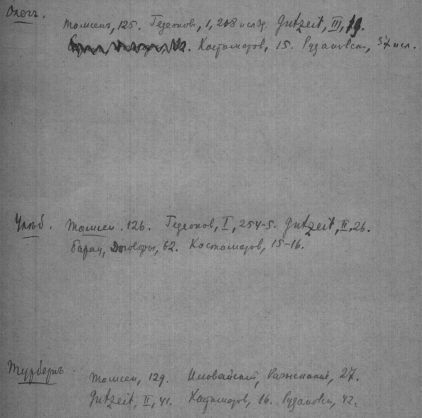 Олегъ.
Томсенъ, 125. Гедеоновъ, I, 218 и слѣд. Gutzeit, III, 19.
Костомаров, 15. Рудановск., 37 исл.
Улѣб. Томсен. 126. Гедеонов, I, 254-5. Gutzeit, II, 26.
Барац, Договоры, 62. Костомаров, 15-16.
Турбернъ
Томсен, 129. Иловайский, Разыскания, 27.
Gutzeit, II, 41. Костомаров, 16. 42.